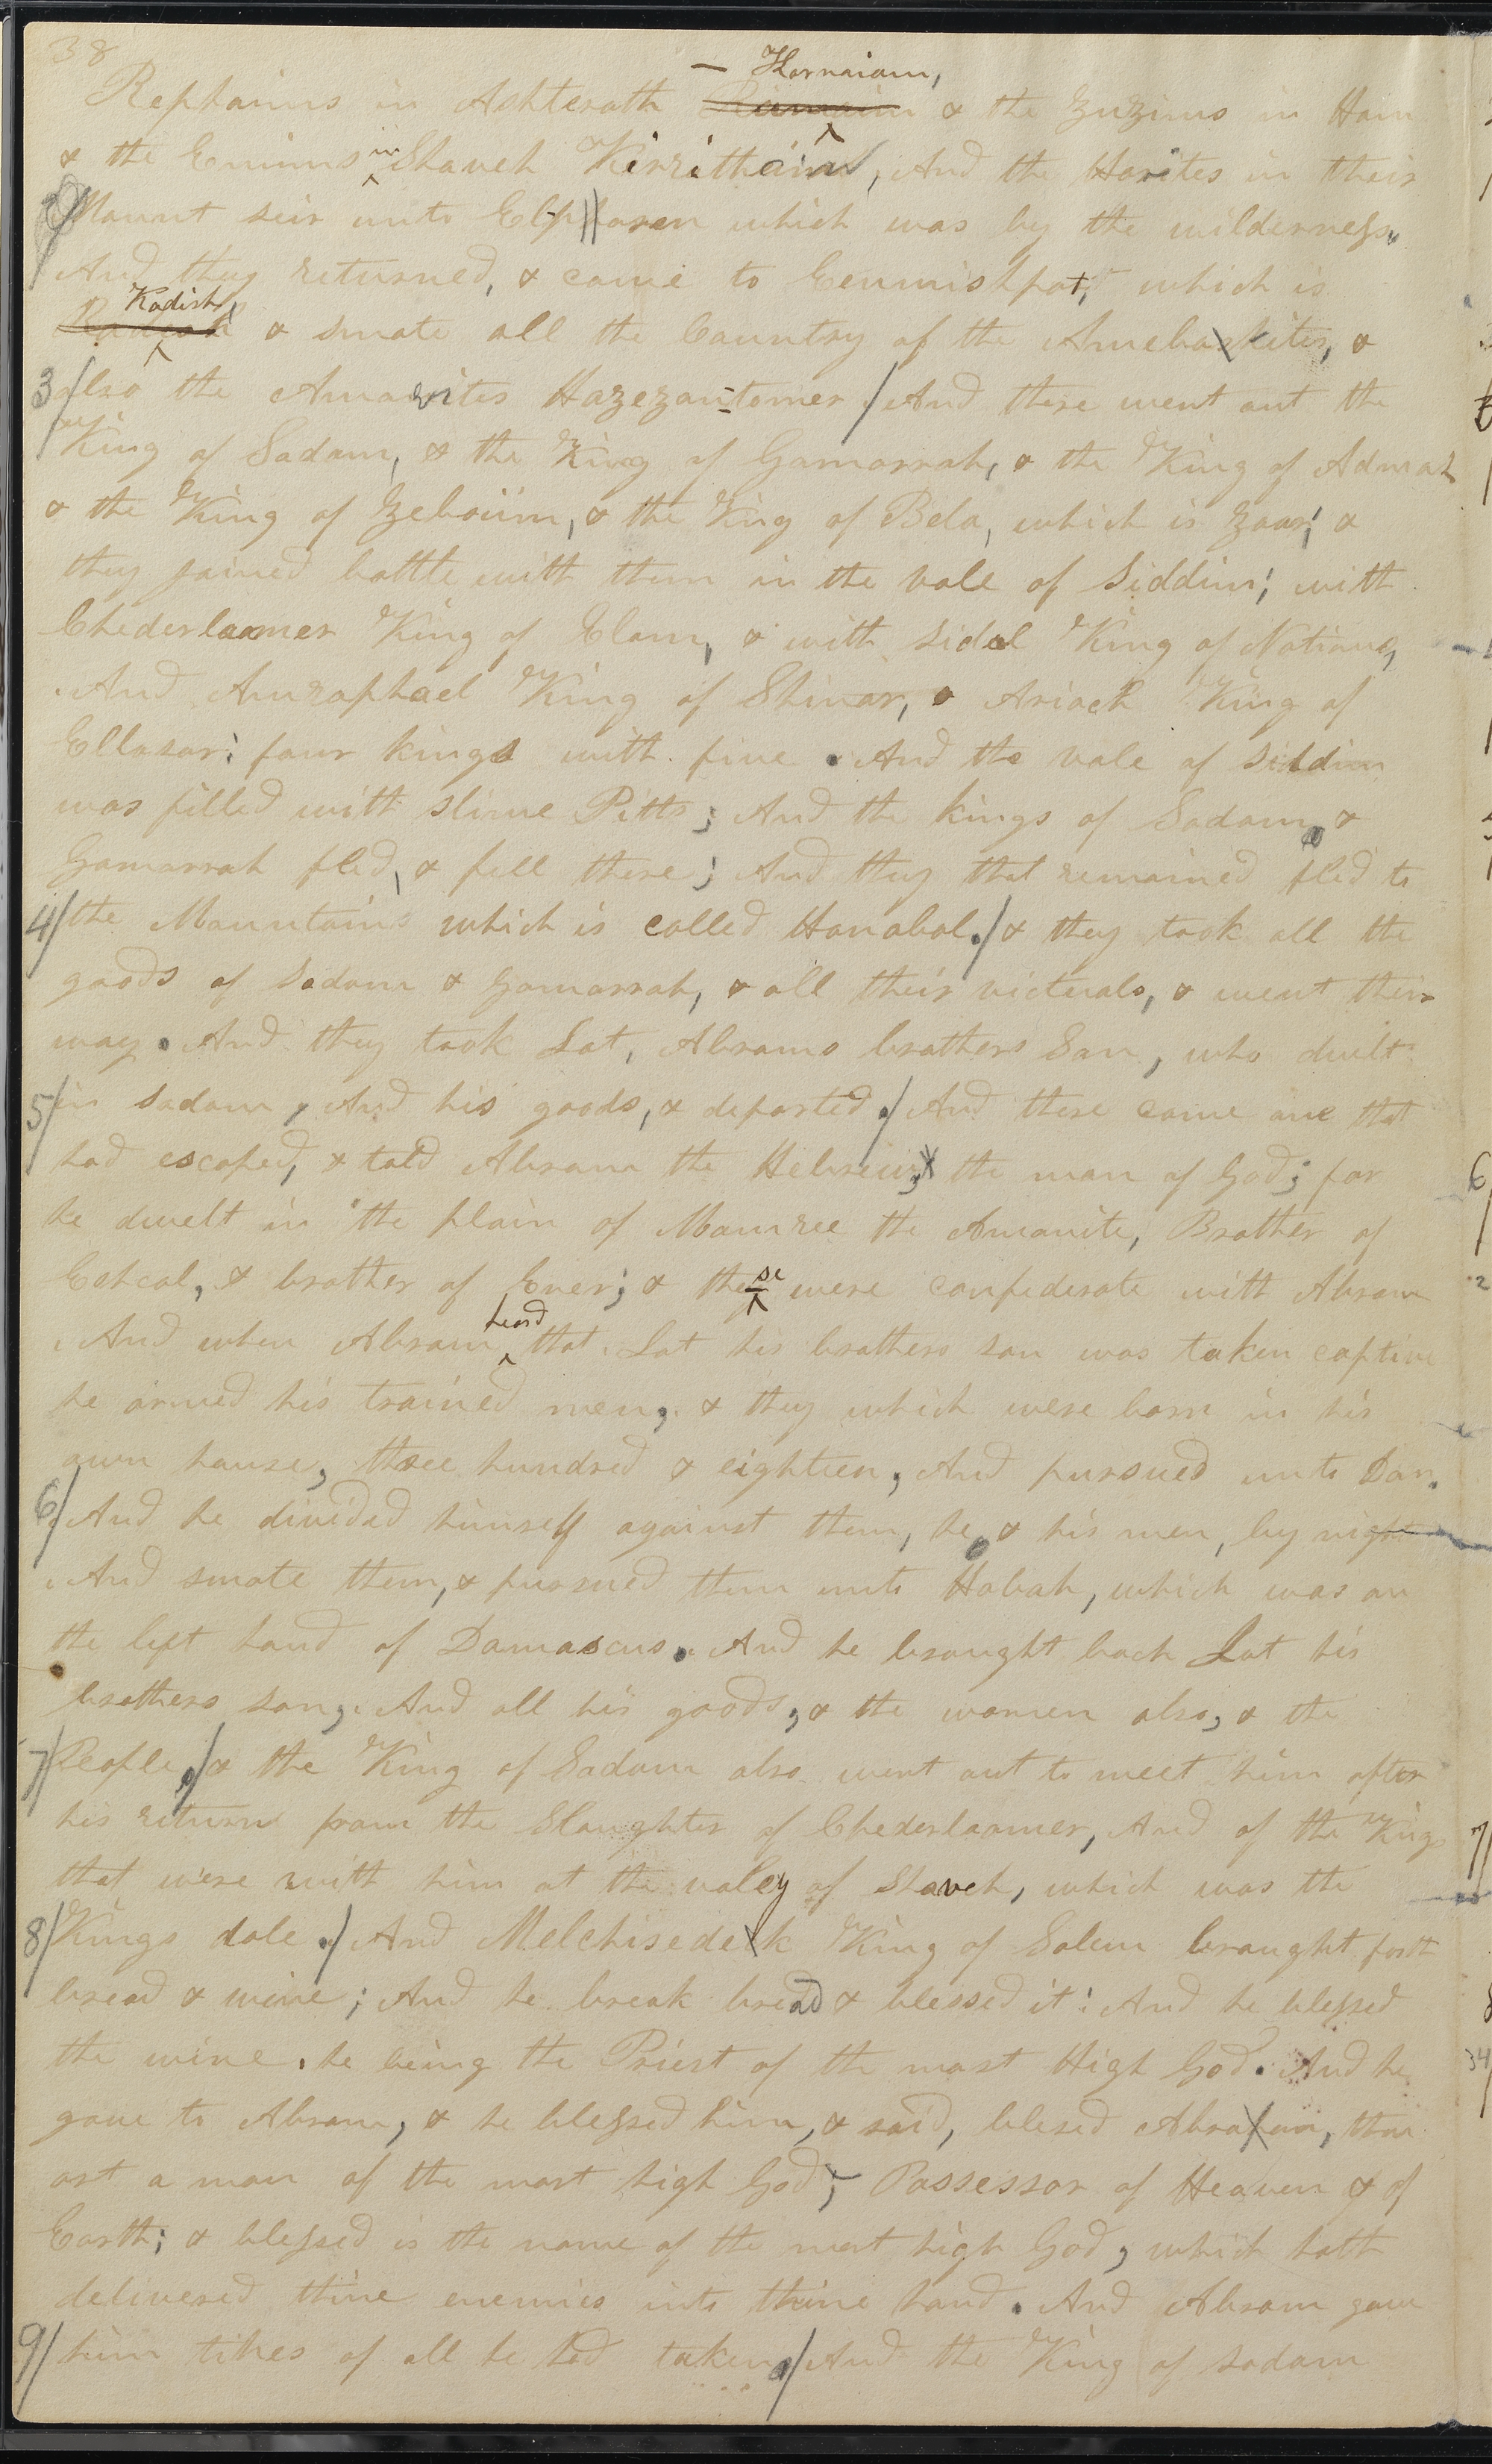 38
— Karnaiam,
Rephaims in Ashteroth & the Zuzims in Ham
& the Emims in Shaveh Kirzithaim, And the Horites in their
2/ Mount seir unto Elp||aren which was by the wilderness.
And they returned, & came to Eenmishpat, which is
Kadish,
& smote all the Country of the Amelakites, &
3/ also the Amarites Hazezan-tomer./ And there went out the
King of Sodom, & the King of Gomorrah, & the King of Admah
& the King of Zeboiim, & the King of Bela, which is Zoar; &
they joined battle with them in the vale of Siddim; with
Chederlaomer King of Elam, & with Sidal King of Nations,
And Amraphael King of Shinar, & Arioch King of
Ellasar; four kings with five. And the vale of Siddim
was filled with slime Pitts; And the kings of Sodom, &
Gomorrah fled, & fell there; And they that remained fled to
4/ the Mountains which is called Hanabal./ & they took all the
goods of Sodom & Gomorrah, & all their victuals, & went their
way. And they took Lot, Abrams brothers Son, who dwelt
5/ in sodom, And his goods, & departed./ And there came one that
had escaped, & told Abram the Hebrew, the man of God; for
he dwelt in the plain of Mamree the Amorite, Brother of
Eshcol, & brother of Ener; & these were confederate with Abram
And when Abram heard that Lot his brothers son was taken captive
he armed his trained men, & they which were born in his
own house, three hundred & eighteen, And pursued unto Dan.
6/ And he divided himself against them, he, & his men, by night
And smote them, & pursued them unto Hobah, which was on
the left hand of Damascus. And he brought back Lot his
brothers son, And all his goods, & the women also, & the
7/ People,/ & the King of Sodom also went out to meet him after
his return from the Slaughter of Chederlaomer, And of the Kings
that were with him at the valey of Shaveh, which was the
8/ Kings dale./ And Melchisedek King of Salem braught forth
bread & wine; And he break bread & blessed it; And he blessed
the wine, he being the Priest of the most High God. And he
gave to Abram, & he blessed him, & said, blesed Abram, thou
art a man of the most high God, Possessor of Heaven & of
Earth; & blessed is the name of the most high God, which hath
delivered thine enemies into thine hand. And Abram gave
9/ him tihes of all he had taken,/ And the King of Sodom